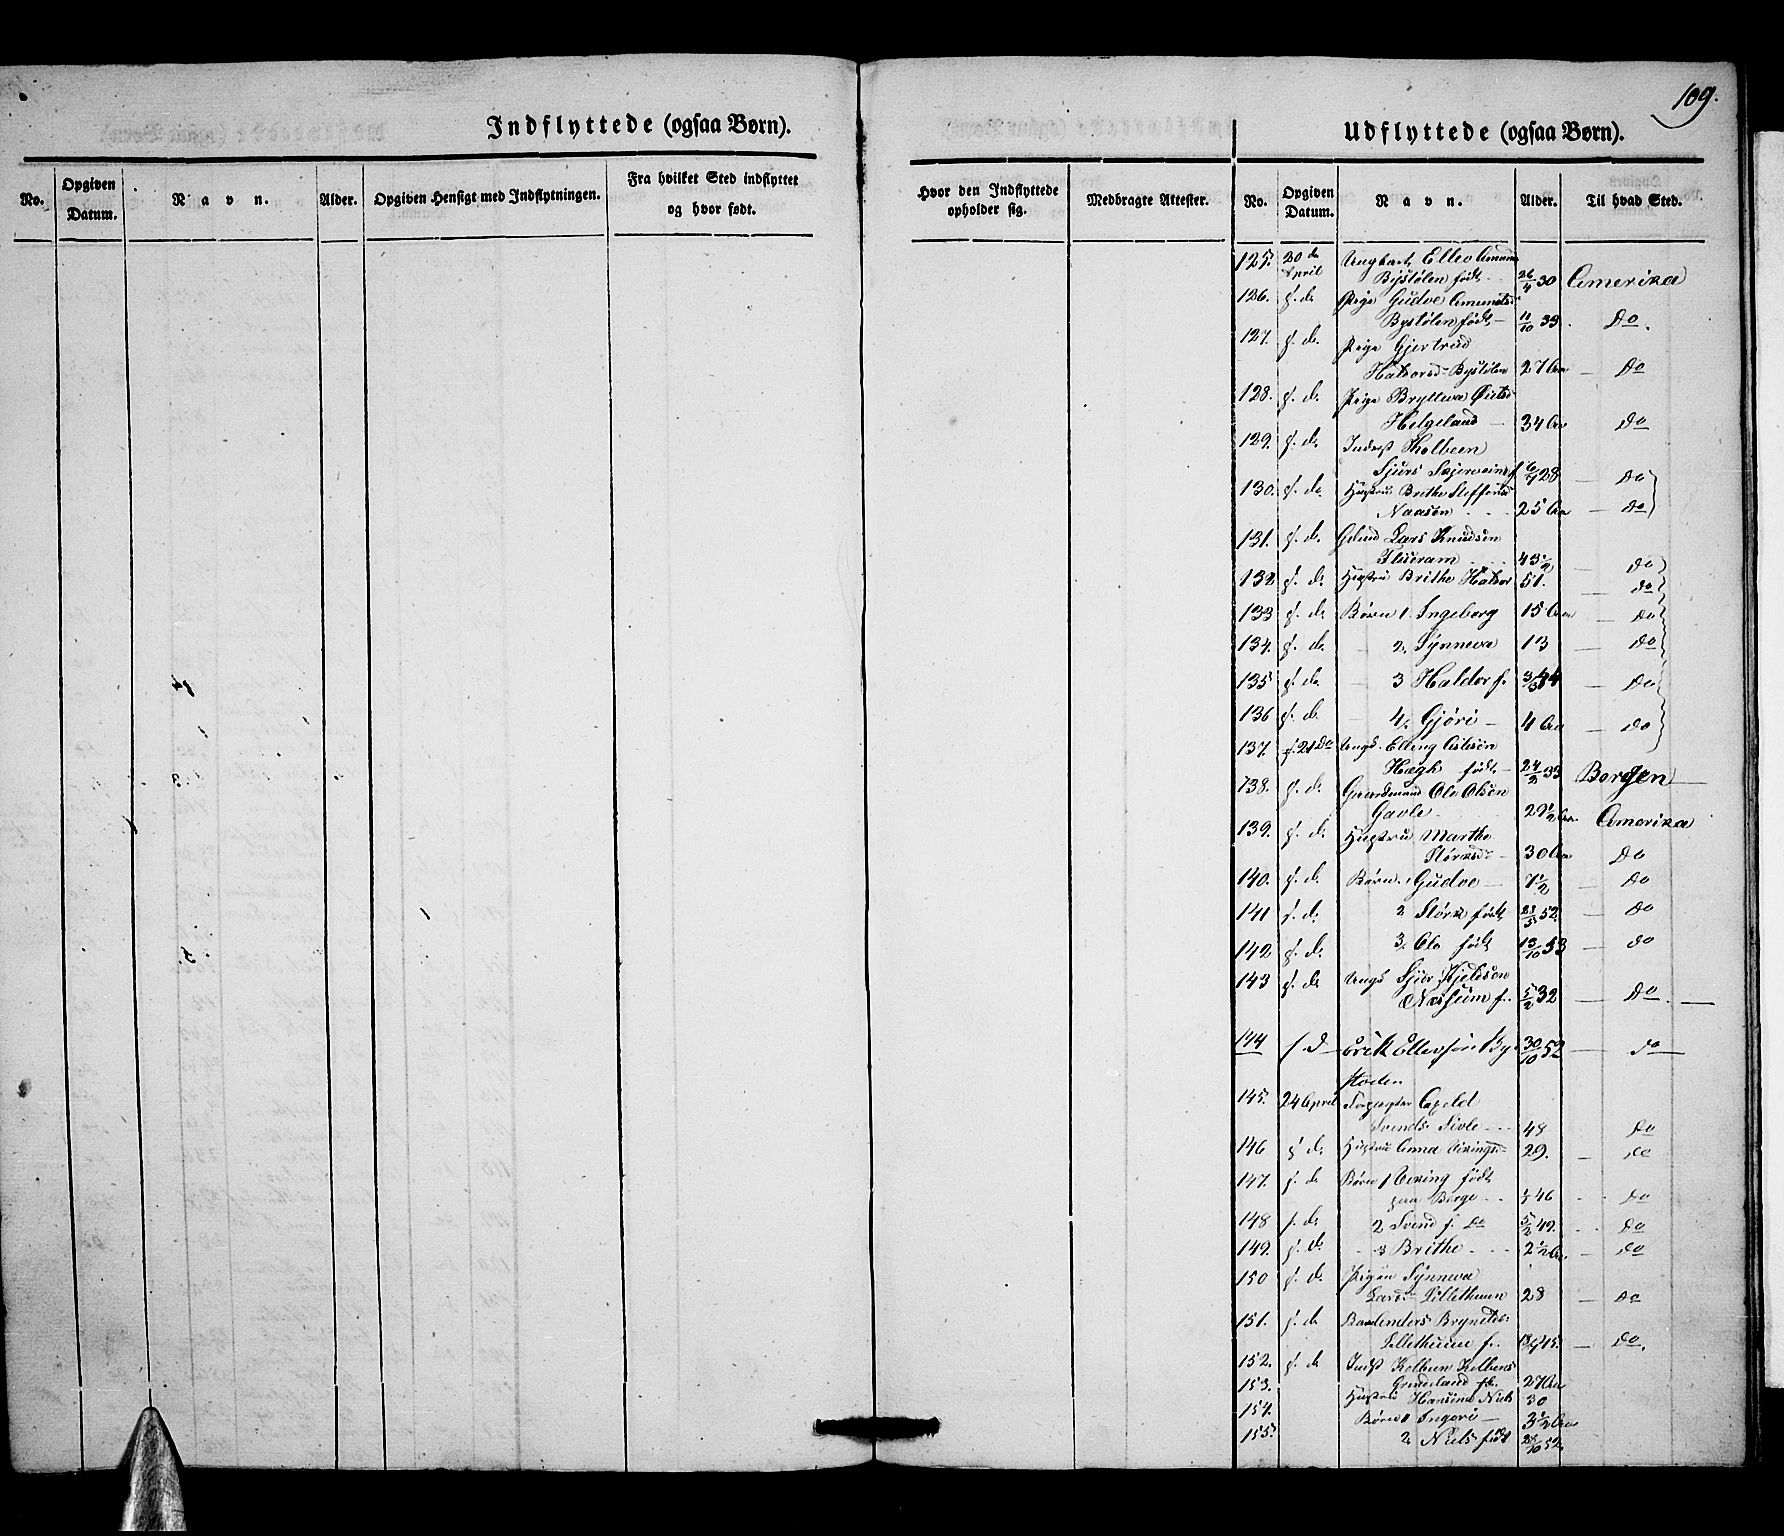 109.
Indflyttede (ogsaa Børn).
No.
Opgiven Datum.
Navn.
Alder.
Opgiven Hensigt med Indflytningen.
Fra hvilket Sted indflyttet og hvor født.
Hvor den Indflyttede opholder sig.
Medbragte Attester.
Udflyttede (ogsaa Børn).
No.
Opgiven Datum.
Navn.
Alder.
Til hvad Sted.
125. 20de April Ungkarl Ellev Amunds
Bystölen født 26/4 30 Amerika
126. s. d. Pige Gudve Amundsd
Bystölen født 11/10 33. Do.
127. s. d. Pige Gjertrud
Halvorsd Bystölen 27 Aar Do
128. s. d. Pige Bryttva
Helgeland 34 Aar Do
129. s. d. Inderst Kolbeen
Sjurs f 28 Do
130. s. d. Hustru Brithe Steffensd
Naasen 25 Aar Do
131. s. d. Lars Knudsen
Flaeram 43 1/2 Do
132 s. d. Hustru Brithe Halvor 51. Do
133 s. d. Børn 1. Ingeborg 15 Aar Do
134. s. d. 2. Synneva 13 Do
135 s. d. 3 Haldor f. 44 Do
136 s. d. 4. Gjöri 4 Aar Do
137. s. 21 Do Ungk. Elling
Hægh født 24/3 33 Bergen
138. s. d. Gaardmand Ole Olsen
Gavle 29 1/2 Aar. Amerika
139. s. d. Hustru Marthe
Størksd 30 Aar Do
140. s. d. Børn. 1 Gudve 7 1/2 Do
141 s. d. 2 Størk født 23/5 52. Do
142 s. d. 3. Ole født 13/10 53 Do
143 s. d. Ungk Sjur Kjeldsen
Næsheim f. 5/2 32 Do
144 s d Erik Ellevsen By- 30/10 52 do
stølen
145. 24 April
Svends Sivle 48 Do
146 s d. Hustru Anna Vikingsd 29. do
147. s. d Børn 1 Viking født
paa Berge 46 Do
148 s. d. 2 Svend f. Do 5/2 49. Do
149. s. d. 3 Brithe 2 1/2 Aar Do
150 s. d. Pigen Synneva
Larsd Lillethuun 28 Do
151. s. d Anders Brynilds
Lillethuun f. Do.
152. s. d Indst Kolbeen Kolbeens
153. Grindeland 27 Aar
Hustru Niels 30
154. Børn 1 Ingeri 3 1/2 Aar
155. 2 Niels født 28/10 52